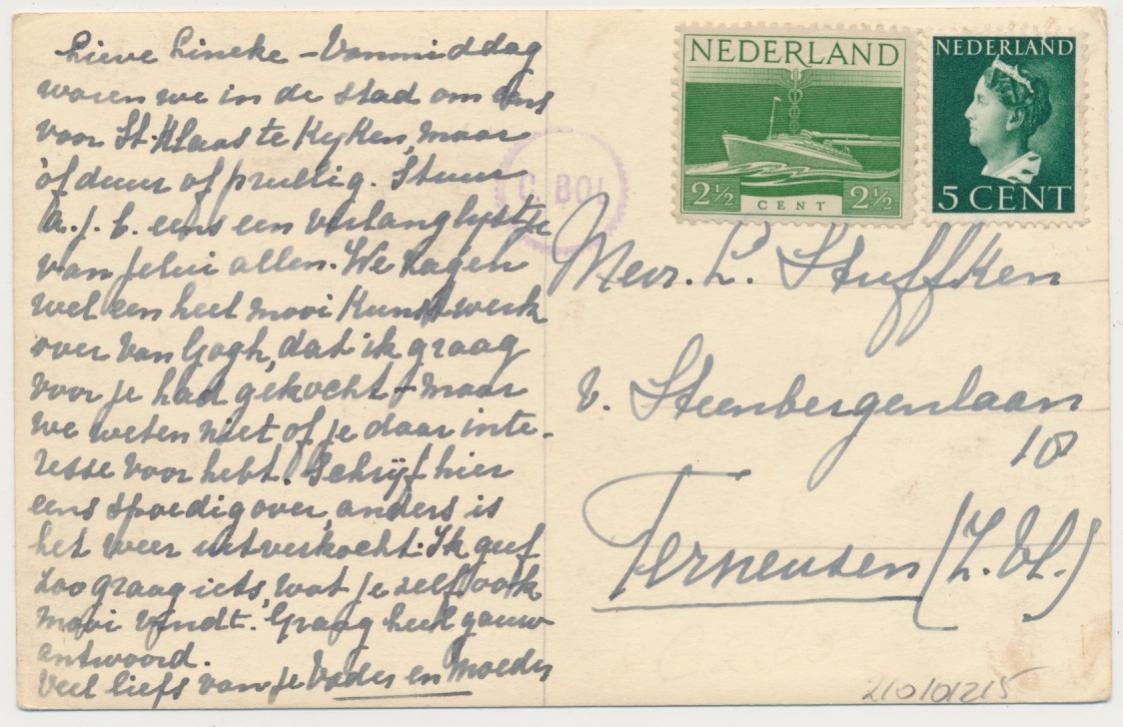 Lieve Lineke - Vanmiddag
waren we in de stad om eens
voor St. Klaas te kijken, maar
òf duur of prullig. Stuur
a. j. b. eens een verlanglijstje
van jelui allen. We zagen
wel een heel mooi kunstwerk
over Van Gogh, dat ik graag
voor je had gekocht - maar
we weten niet of je daar inte-
resse voor hebt. Schrijf hier
eens spoedig over, anders is
het weer uitverkocht. Ik geef
zoo graag iets, wat je zelf ook
mooi vindt. Graag heel gauw
antwoord.
Veel liefs van je Vader en Moeder
C. BOL
NEDERLAND
2½ CENT 2½
NEDERLAND
5 CENT
Mevr. L. Stuffken
v. Steenbergenlaan
10
Terneuzen (Z. Vl.)